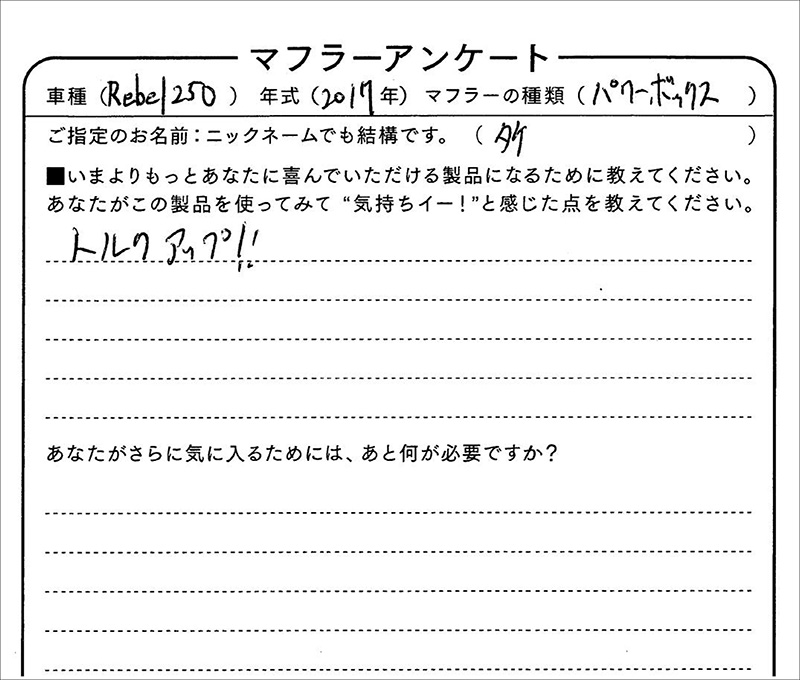 マフラーアンケート
車種（Rebel 250）　年式（2017年）マフラーの種類（パワーボックス　）
ご指定のお名前：ニックネームでも結構です。（タケ　）
■いまよりもっとあなたに喜んでいただける製品になるために教えてください。
あなたがこの製品を使ってみて“気持ちイー！”と感じた点を教えてください。
トルクアップ!!
あなたがさらに気に入るためには、あと何が必要ですか？